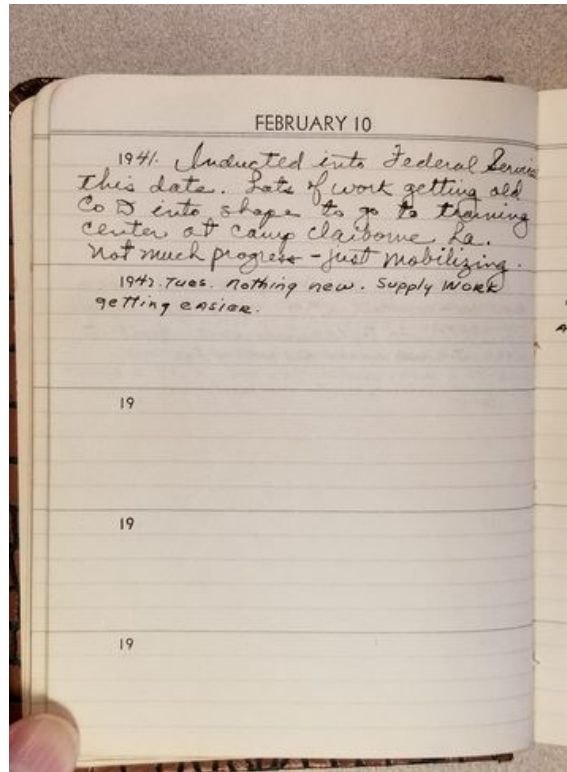 FEBRUARY 10
1941. Inducted into Federal Service
this date. Lots of work getting old
Co D into shape to go to training
center at Camp Claiborne, La.
Not much progress - just mobilizing.
1942. Tues. Nothing new. Supply Work
getting easier.
19
19
19